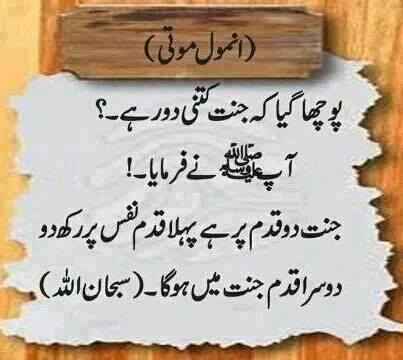 (انمول موتی)
پوچھا گیا کہ جنت کتنی دور ہے۔؟
آپ ﷺ نے فرمایا۔!
جنت دو قدم پر ہے پہلا قدم نفس پر رکھ دو
دوسرا قدم جنت میں ہوگا۔(سبحان اللہ)